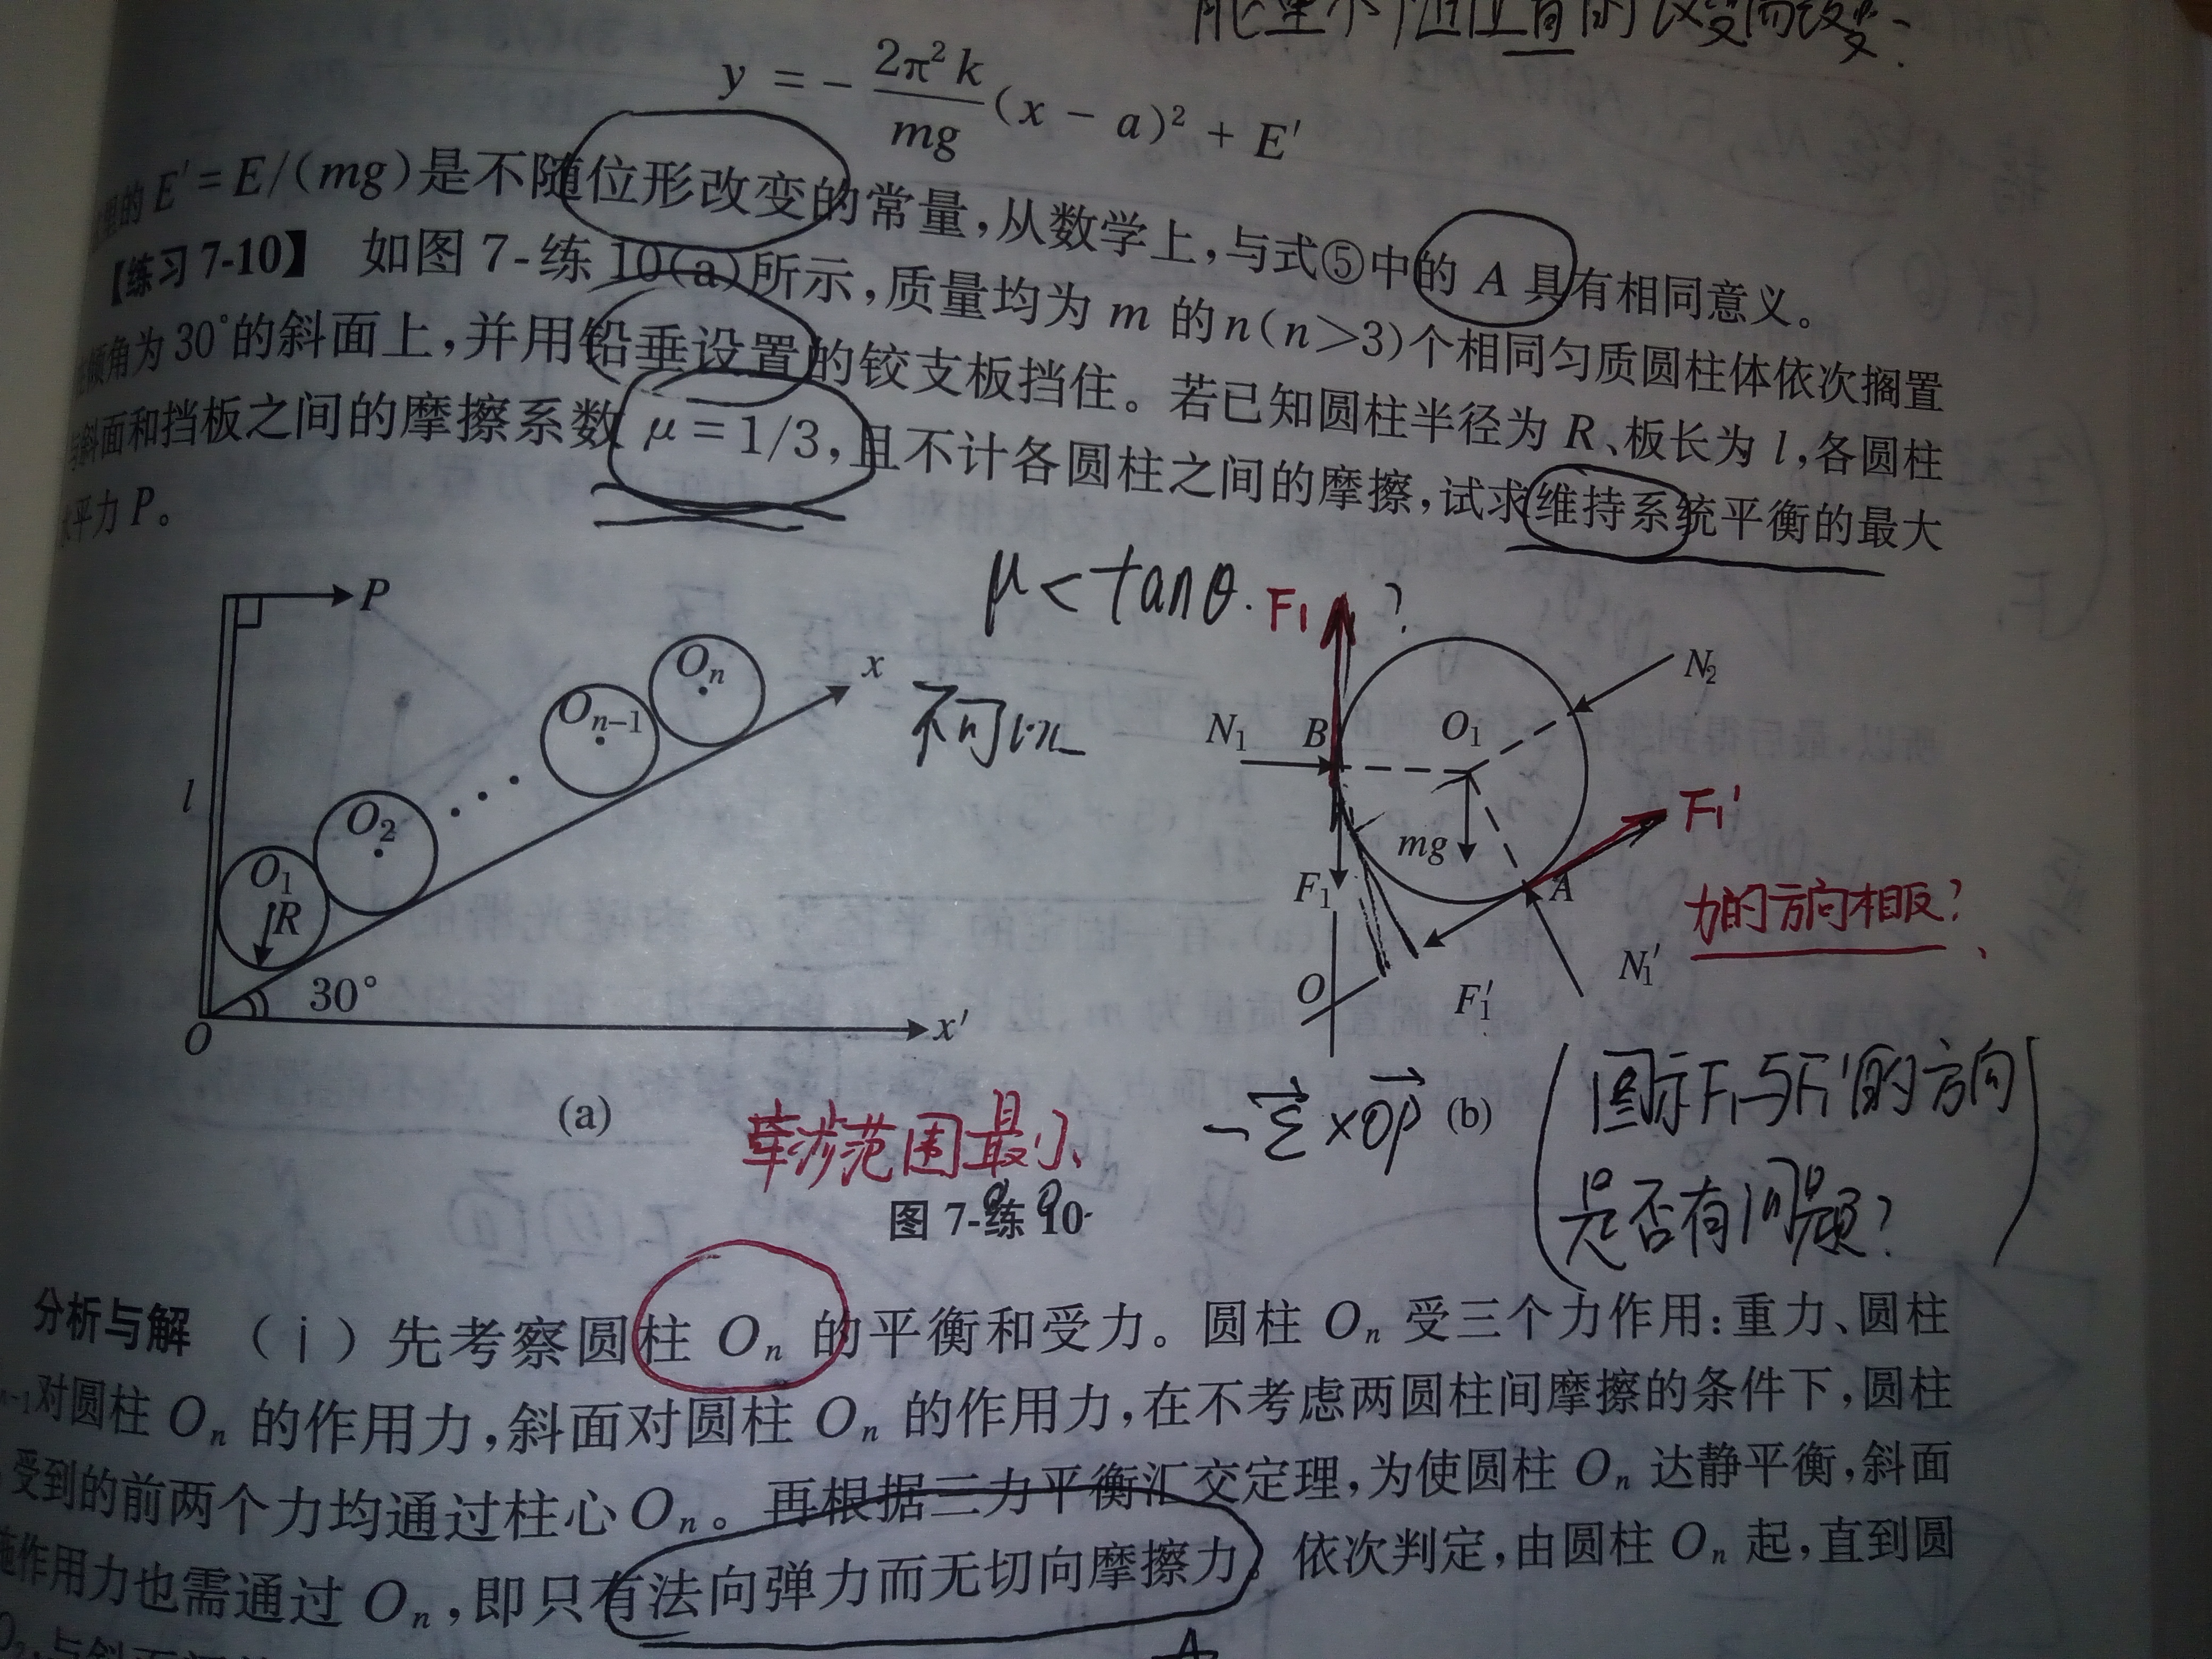 能量不随位置的改变而改变.
y = - 2π²k/mg (x - a)² + E′
里的 E′=E/(mg)是不随位形改变的常量,从数学上,与式⑤中的 A 具有相同意义。
【练习 7-10】 如图 7-练 10(a)所示,质量均为 m 的 n(n>3)个相同匀质圆柱体依次搁置
倾角为 30°的斜面上,并用铅垂设置的铰支板挡住。若已知圆柱半径为 R、板长为 l,各圆柱
与斜面和挡板之间的摩擦系数 μ=1/3,且不计各圆柱之间的摩擦,试求维持系统平衡的最大
水平力 P。
μ<tanθ.
P
l
O1
R
O2
On-1
On
x
30°
O
x′
(a)
F1
?
N1
B
O1
N2
mg
F1
A
F1′
力的方向相反?
O
F1′
N1′
牵涉范围最小
(b)
(图示F1与F1′的方向
是否有问题?)
图 7-练 10
分析与解 (ⅰ)先考察圆柱 On 的平衡和受力。圆柱 On 受三个力作用:重力、圆柱
n-1对圆柱 On 的作用力,斜面对圆柱 On 的作用力,在不考虑两圆柱间摩擦的条件下,圆柱
受到的前两个力均通过柱心 On。再根据三力平衡汇交定理,为使圆柱 On 达静平衡,斜面
施作用力也需通过 On,即只有法向弹力而无切向摩擦力。依次判定,由圆柱 On 起,直到圆